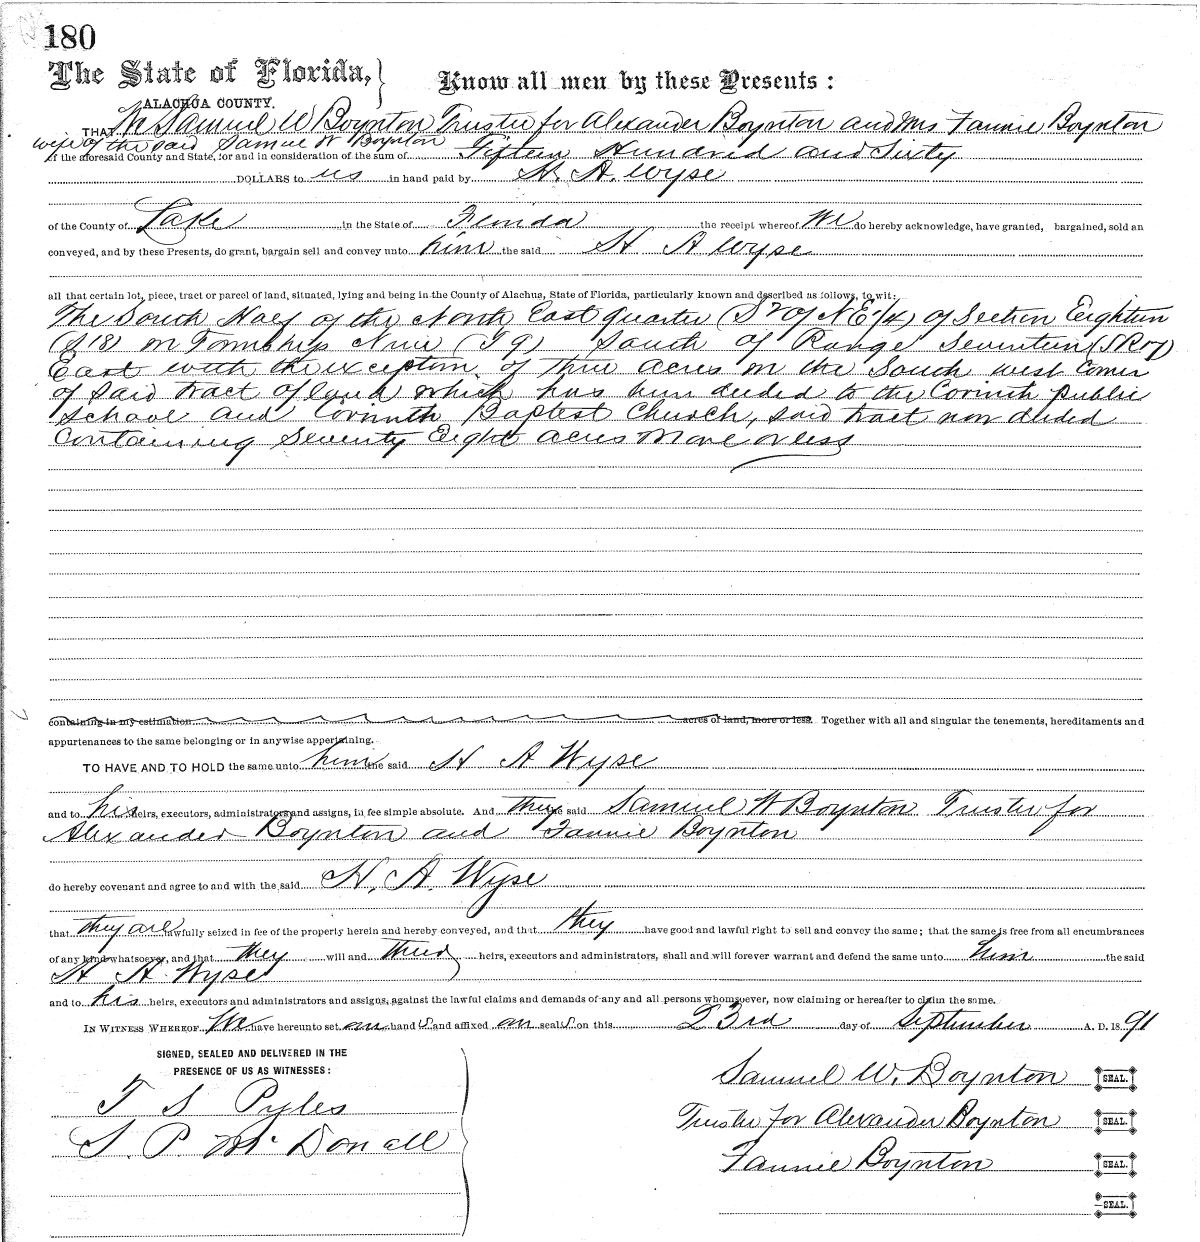 180
The State of Florida,} Know all men by these Presents:
ALACHUA COUNTY.
THAT We Samuel W Boynton Trustee for Alexander Boynton and Mrs Fannie Boynton
wife of the said Samuel W Boynton
of the aforesaid County and State, for and in consideration of the sum of Fifteen Hundred and Sixty
DOLLARS to us in hand paid by H. A. Wyse
of the County of Lake in the State of Florida the receipt whereof We do hereby acknowledge, have granted, bargained, sold an
conveyed, and by these Presents, do grant, bargain sell and convey unto him the said H A Wyse
all that certain lot, piece, tract or parcel of land, situated, lying and being in the County of Alachua, State of Florida, particularly known and described as follows, to wit:
The South Half of the North East quarter (S½ of NE¼) of Section Eighteen
(S18) in Township Nine (T9) South of Range Seventeen (SR17)
East with the exception of Three acres in the South west Corner
of Said tract of land which has been deeded to the Corinth Public
School and Corinth Baptist Church, said tract now deeded
Containing Seventy Eight acres More or less
containing in my estimation acres of land, more or less. Together with all and singular the tenements, hereditaments and
appurtenances to the same belonging or in anywise appertaining.
TO HAVE AND TO HOLD the same unto him the said H A Wyse
and to his heirs, executors, administrators and assigns, in fee simple absolute. And they the said Samuel W Boynton Trustee for
Alexander Boynton and Fannie Boynton
do hereby covenant and agree to and with the said H. A. Wyse
that they are lawfully seized in fee of the property herein and hereby conveyed, and that they have good and lawful right to sell and convey the same; that the same is free from all encumbrances
of any kind whatsoever, and that they will and their heirs, executors and administrators, shall and will forever warrant and defend the same unto him the said
H A Wyse
and to his heirs, executors and administrators and assigns, against the lawful claims and demands of any and all persons whomsoever, now claiming or hereafter to claim the same.
IN WITNESS WHEREOF We have hereunto set our hand s and affixed our seal s on this 23rd day of September A. D. 18 91
SIGNED, SEALED AND DELIVERED IN THE
PRESENCE OF US AS WITNESSES:
T S Pyles
S. P. McDonall
Samuel W. Boynton SEAL.
Trustee for Alexander Boynton SEAL.
Fannie Boynton SEAL.
SEAL.